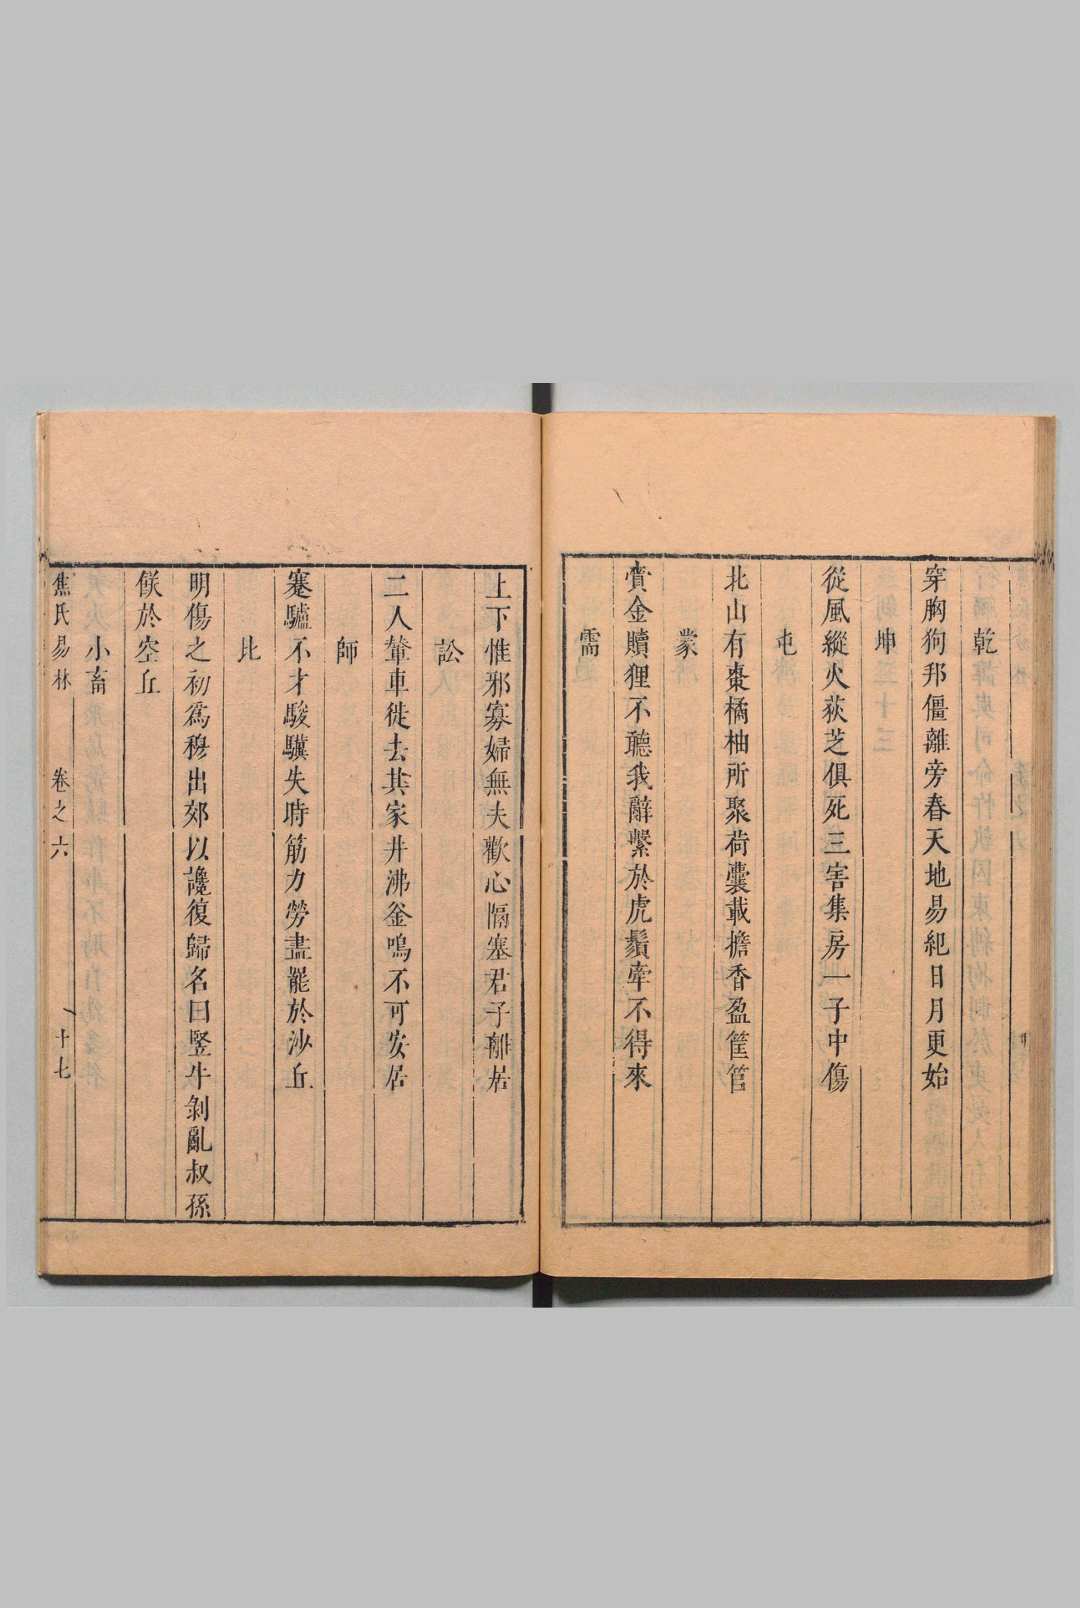 乾
穿胸狗邦僵離旁春天地易紀日月更始
坤
從風縱火荻芝俱死三害集房一子中傷
屯
北山有棗橘柚所聚荷囊載擔香盈筐筥
蒙
賁金贖狸不聽我辭繫於虎鬚牽不得來
需
上下惟邪寡婦無夫歡心隔塞君子離居
訟
二人輦車徙去其家井沸釜鳴不可安居
師
蹇驢不才駿驥失時筋力勞盡罷於沙丘
比
明傷之初爲穆出郊以讒復歸名曰豎牛剝亂叔孫
餒於空丘
小畜
焦氏易林 卷之六 十七